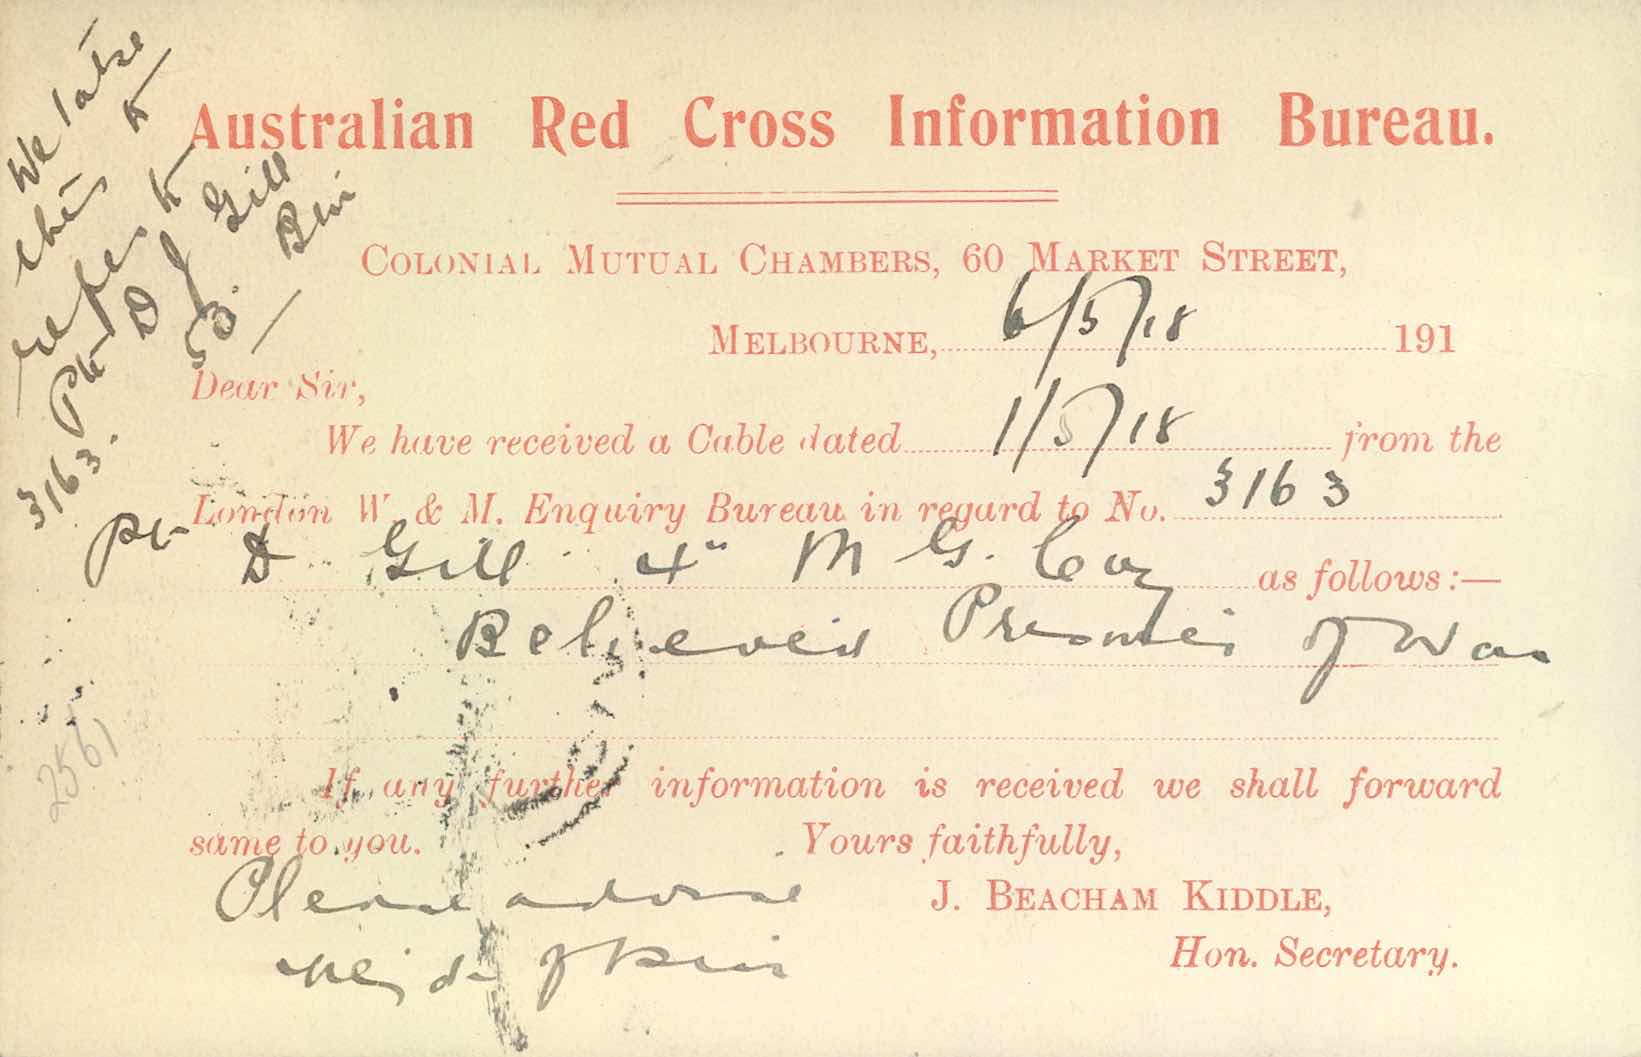 We take
this to
refer to
Pte D J Gill
53. Bn
3163.
Australian Red Cross Information Bureau.
COLONIAL MUTUAL CHAMBERS, 60 MARKET STREET,
MELBOURNE, 6/5/18 191
Dear Sir,
We have received a Cable dated 1/5/18 from the
London W. & M. Enquiry Bureau in regard to No. 3163
Pte D Gill 4" M G. Coy as follows:—
Believed Prisoner of War
2561
If any further information is received we shall forward
same to you. Yours faithfully,
Please advise J. BEACHAM KIDDLE,
next of kin Hon. Secretary.